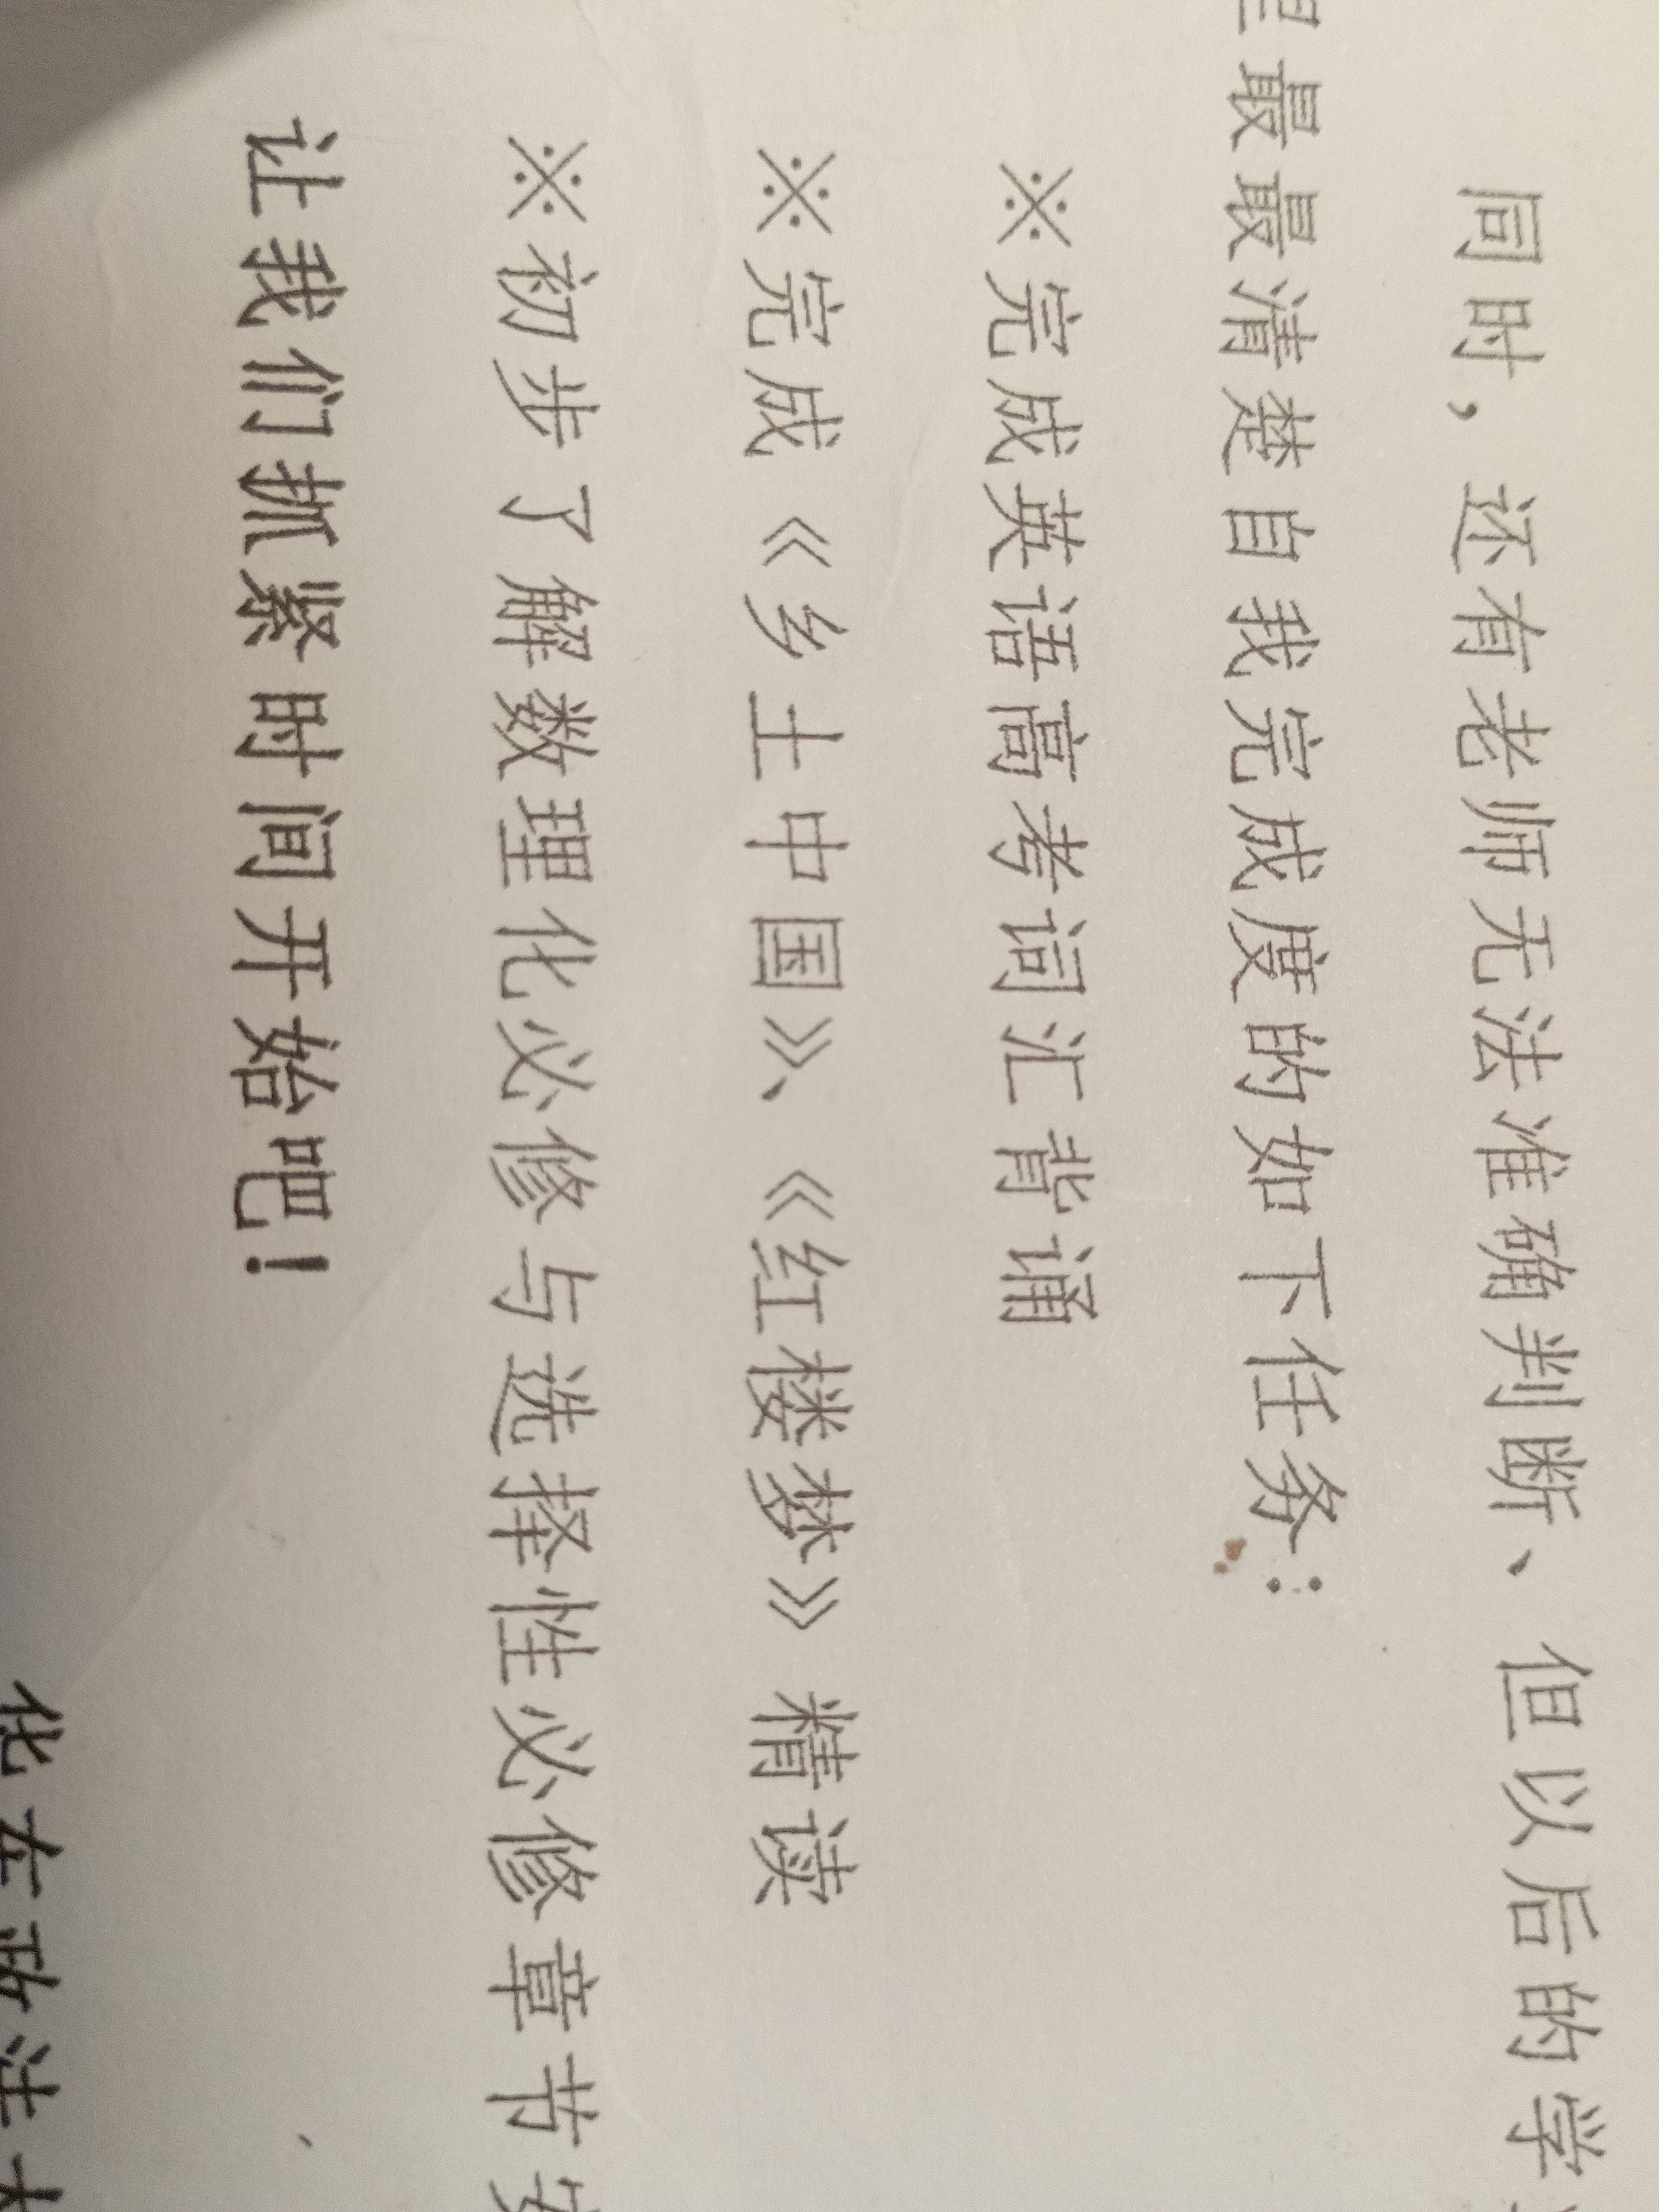 同时，还有老师无法准确判断、但以后的学
最最清楚自我完成度的如下任务：
※完成英语高考词汇背诵
※完成《乡土中国》、《红楼梦》精读
※初步了解数理化必修与选择性必修章节安
让我们抓紧时间开始吧！
化在政法大